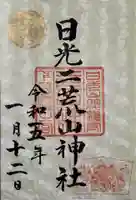 日光二荒山神社
令和五年
一月十二日